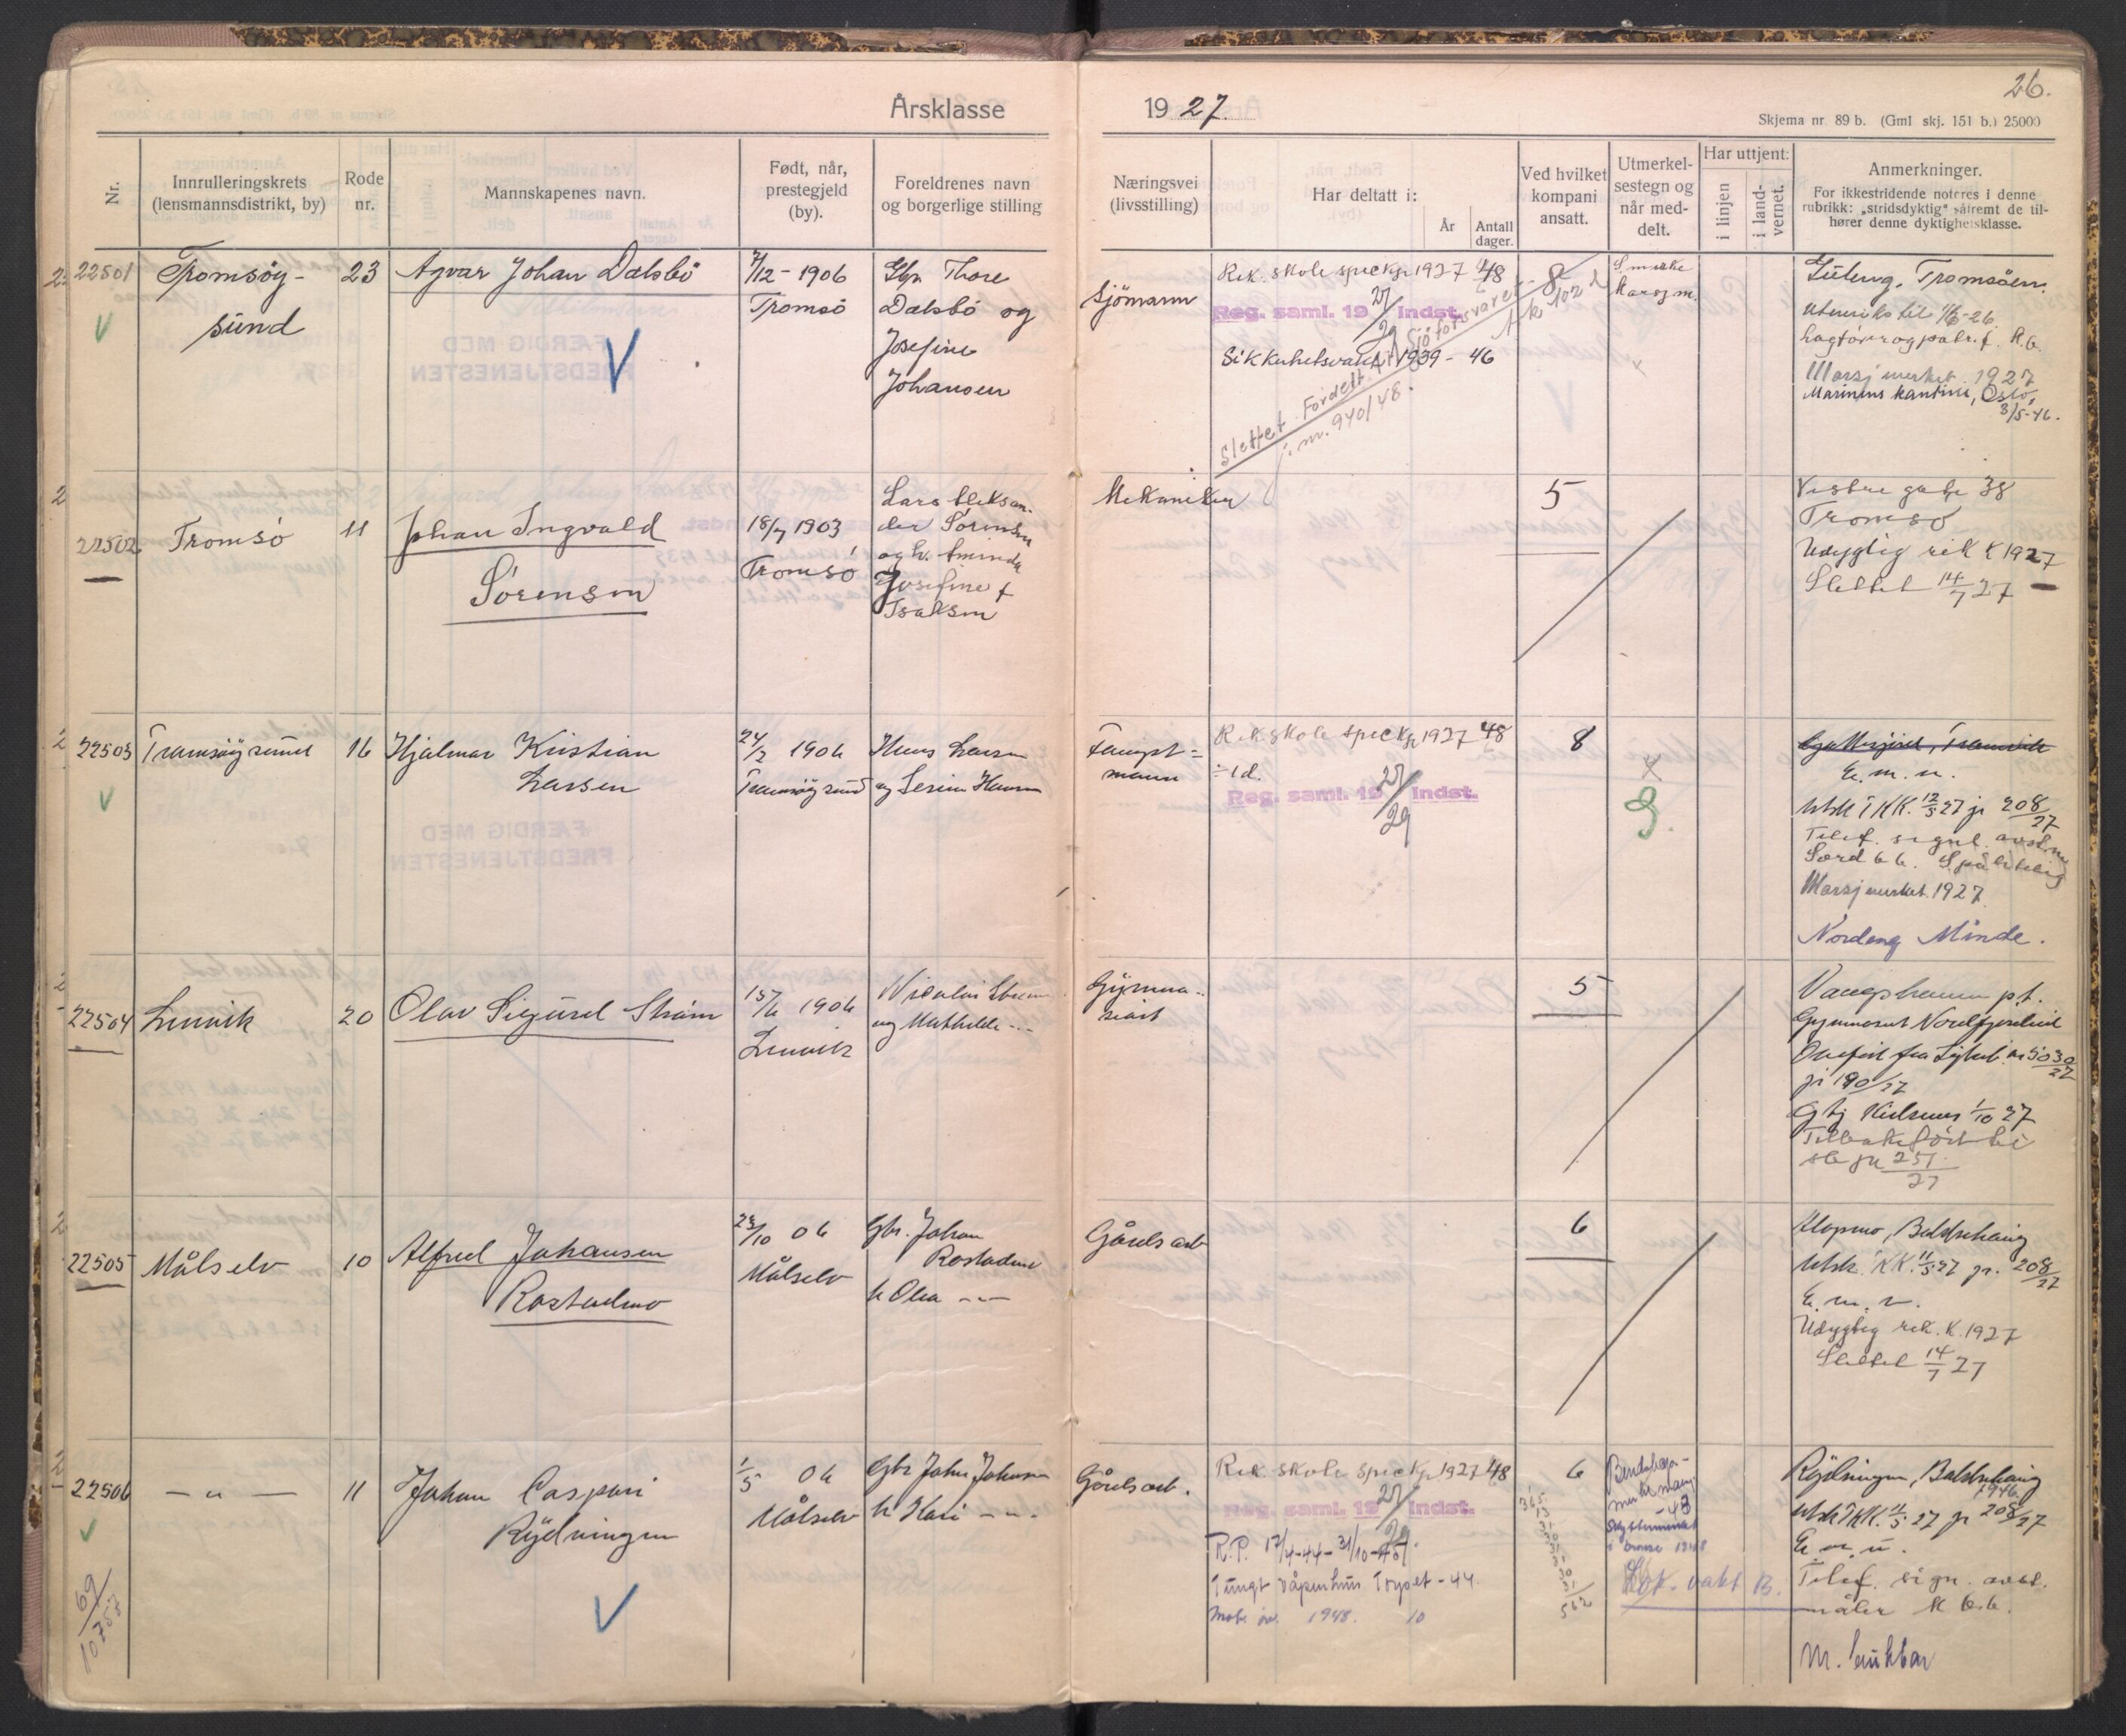 26.
Årsklasse
1927.
Skjema nr. 89 b. (Gml skj. 151 b.) 25000
Nr.
Innrulleringskrets
(lensmannsdistrikt, by)
Rode
nr.
Mannskapenes navn.
Født, når,
prestegjeld
(by).
Foreldrenes navn
og borgerlige stilling
Næringsvei
(livsstilling)
Har deltatt i:
År
Antall
dager.
Ved hvilket
kompani
ansatt.
Utmerkel-
sestegn og
når med-
delt.
Har uttjent:
i linjen
i land-
vernet.
Anmerkninger.
For ikkestridende noteres i denne
rubrikk: „stridsdyktig" såfremt de til-
hører denne dyktighetsklasse.
22501
Tromsöy-
sund
23
Agvar Johan Dalsbö
7/12 - 1906
Tromsö
Gbr. Thore
Dalsbö og
Josefine
Johansen
Sjömann
Rek. skole spec kp 1927 48
Reg. saml. 19 27/29 Indst.
Sikkerhetsvakt 1939 - 46
Slettet. Fordelt til Sjöforsvaret
j. nr. 940/48.
8
S. merke
Marsjm.
Tromsöen.
Utenriks til 1/6-26
Marsjmerket 1927
Marinens kantine, Oslo,
3/5-46.
22502
Tromsö
11
Johan Ingvald
Sörensen
18/7 1903
Tromsö
Lars Aleksan-
der Sörensen
og h. Aminda
Josefine f
Isaksen
Mekaniker
5
Vestre gate 38
Tromsö
Udygtig rek K 1927
Slettet 14/7 27
22503
Tromsöysund
16
Hjalmar Kristian
Larsen
24/2 1906
Tromsöysund
Hans Larsen
og Serine Hansen
Fangst-
mann
Rek. skole spec kp 1927 48
÷ 1 d.
Reg. saml. 19 27/29 Indst.
8
E. m. u.
Utsk TKK. 12/5 27 jr 208/27
Telef. signal. avst.m
Særd b b. Spålitelig
Marsjmerket 1927
Nordeng Minde.
22504
Lenvik
20
Olav Sigurd Ström
15/6 1906
Lenvik
Nicolai Ström
og Mathilde -"-
Gymna-
siast
5
Vangshamn p.t.
Gymnaset Nordfjordeid
Overfört fra Sjörul. nr 5030/27
jr 190/27
Tilbakefört til
jr 251/27
22505
Målselv
10
Alfred Johansen
Rostadmo
23/10 06
Målselv
Gbr. Johan
Rostadmo
h Olea -"-
Gårdsarb
6
Mopmo, Baldrshaug
Utsk. KK. 11/5 27 jr. 208/27
E. m. u.
Udygtig rek. K. 1927
Slettet 14/7 27
22506
- " -
11
Johan Caspari
Rydningen
1/5 06
Målselv
Gbr John Johnsen
h Kari -"-
Gårdsarb.
Rek skole spec kp 1927 48
Reg. saml. 19 27/29 Indst.
R.P. 17/4-44 - 31/10-45.
Tungt våpenkurs Tryset - 44.
Mob. öv. 1948. 10
6
Skyttermerket
i bronse 1948
Lok. vakt B.
Rydningen, Baldrshaug
1946.
Utsk TKK. 11/5 27 jr 208/27
E. m. u.
Telef. sign. avst.
måler K b. b.
m. brukbar
69/10757